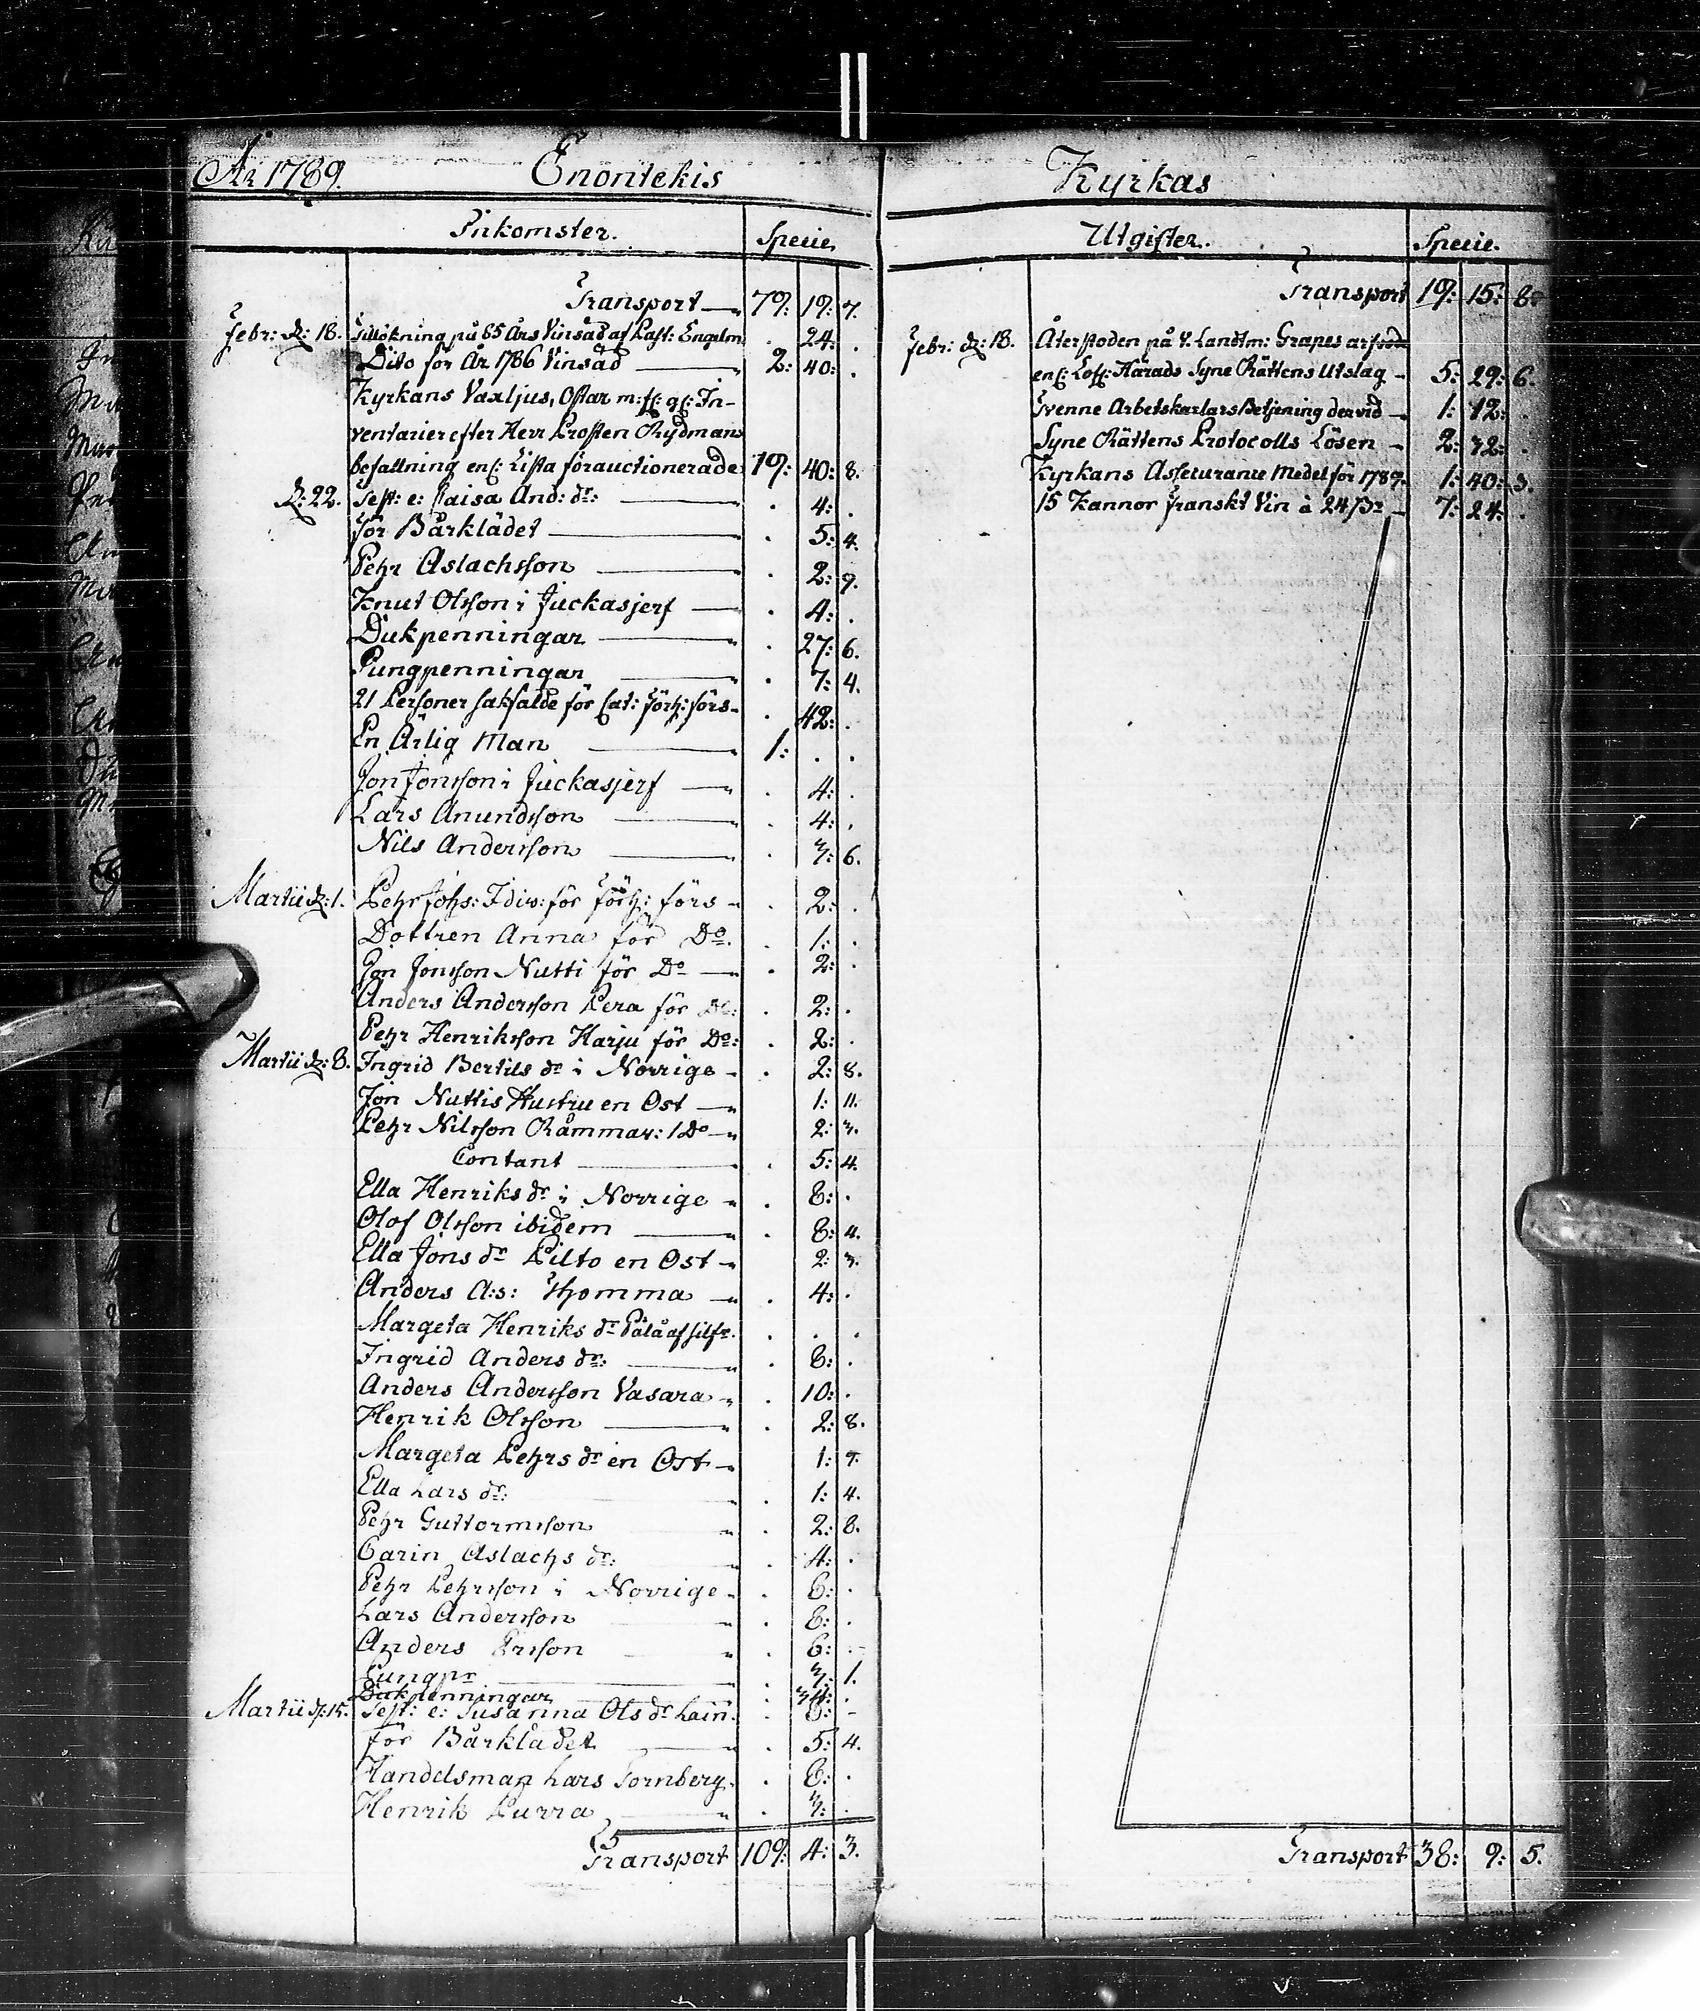 År 1789. Enontekis
Inkomster. Specie.
Transport 79: 19: 7.
Febr: d: 18. Tillökning på 85 Års Vinsäd af Past: Engelm . 24: .
Dito för År 1786 Vinsäd 2: 40: .
Kyrkans Vaxljus, Ostar m: fl: gl: In-
ventarier efter Herr Prosten Rydmans
befallning enl: Lista förauctionerade 19: 40: 8.
d: 22. Test: e: Caisa And: dr: . 4: .
för Bårklädet . 5: 4.
Pehr Aslachsson . 2: 9.
Knut Olsson i Juckasjerf . 4: .
Dukpenningar . 27: 6.
Pungpenningar . 7: 4.
21 Personer sakfälde för Cat: Förh: förs . 42: .
En Ärlig Man 1: . .
Jon Jonsson i Juckasjerf . 4: .
Lars Anundsson . 4: .
Nils Andersson . 3: 6.
Martii d: 1. Pehr Johs: Idiv: för Förh: förs . 2: .
Dottren Anna för Do. . 1: .
Jon Jonsson Nutti för Do . 2: .
Anders Andersson Pera för Do: . 2: .
Pehr Henriksson Harju för Do: . 2: .
Martii d: 8. Ingrid Bertils dr i Norrige . 2: 8.
Jon Nuttis Hustru en Ost 1: 11.
Pehr Nilsson Råmmav: 1 Do 2: 3.
Contant . 5: 4.
Ella Henriks dr i Norrige . 8: .
Olof Olsson ibidem . 8: 4.
Ella Jons dr Pilto en Ost 2: 3.
Anders A:s: Thomma . 4: .
Margeta Henriks dr Påla af silfr. . . .
Ingrid Anders dr: . 8: .
Anders Andersson Vasara . 10: .
Henrik Olsson . 2: 8.
Margeta Pehrs dr en Ost 1: 9.
Ella Lars dr: . 1: 4.
Pehr Guttormsson . 2: 8.
Carin Aslachs dr: . 4: .
Pehr Pehrsson i Norrige . 8: .
Lars Andersson . 8: .
Anders Ersson . 6: .
Pungpr . 3: 1.
Dukpenningar . 34: .
Martii d: 15. Test: e: Susanna Ols dr Lain: . 8: -
för Bårklädet . 5: 4.
Handelsman Lars Tornberg . 8: .
Henrik Purra . 3: .
Transport 109: 4: 3.
Kyrkas
Utgifter. Specie.
Transport 19: 15: 8.
Febr: d: 18. Återstoden på V. Landtm: Grapes arfvode
enl: Lofl: Härads Syne Rättens Utslag 5: 29: 6.
Tvenne Arbetskarlars Betjening dervid 1: 12: .
Syne Rättens Protocolls Lösen 2: 32: .
Kyrkans Assecurance Medel för 1789. 1: 40: 3.
15 Kannor Franskt Vin à 24 sr 7: 24: .
Transport 38: 9: 5.